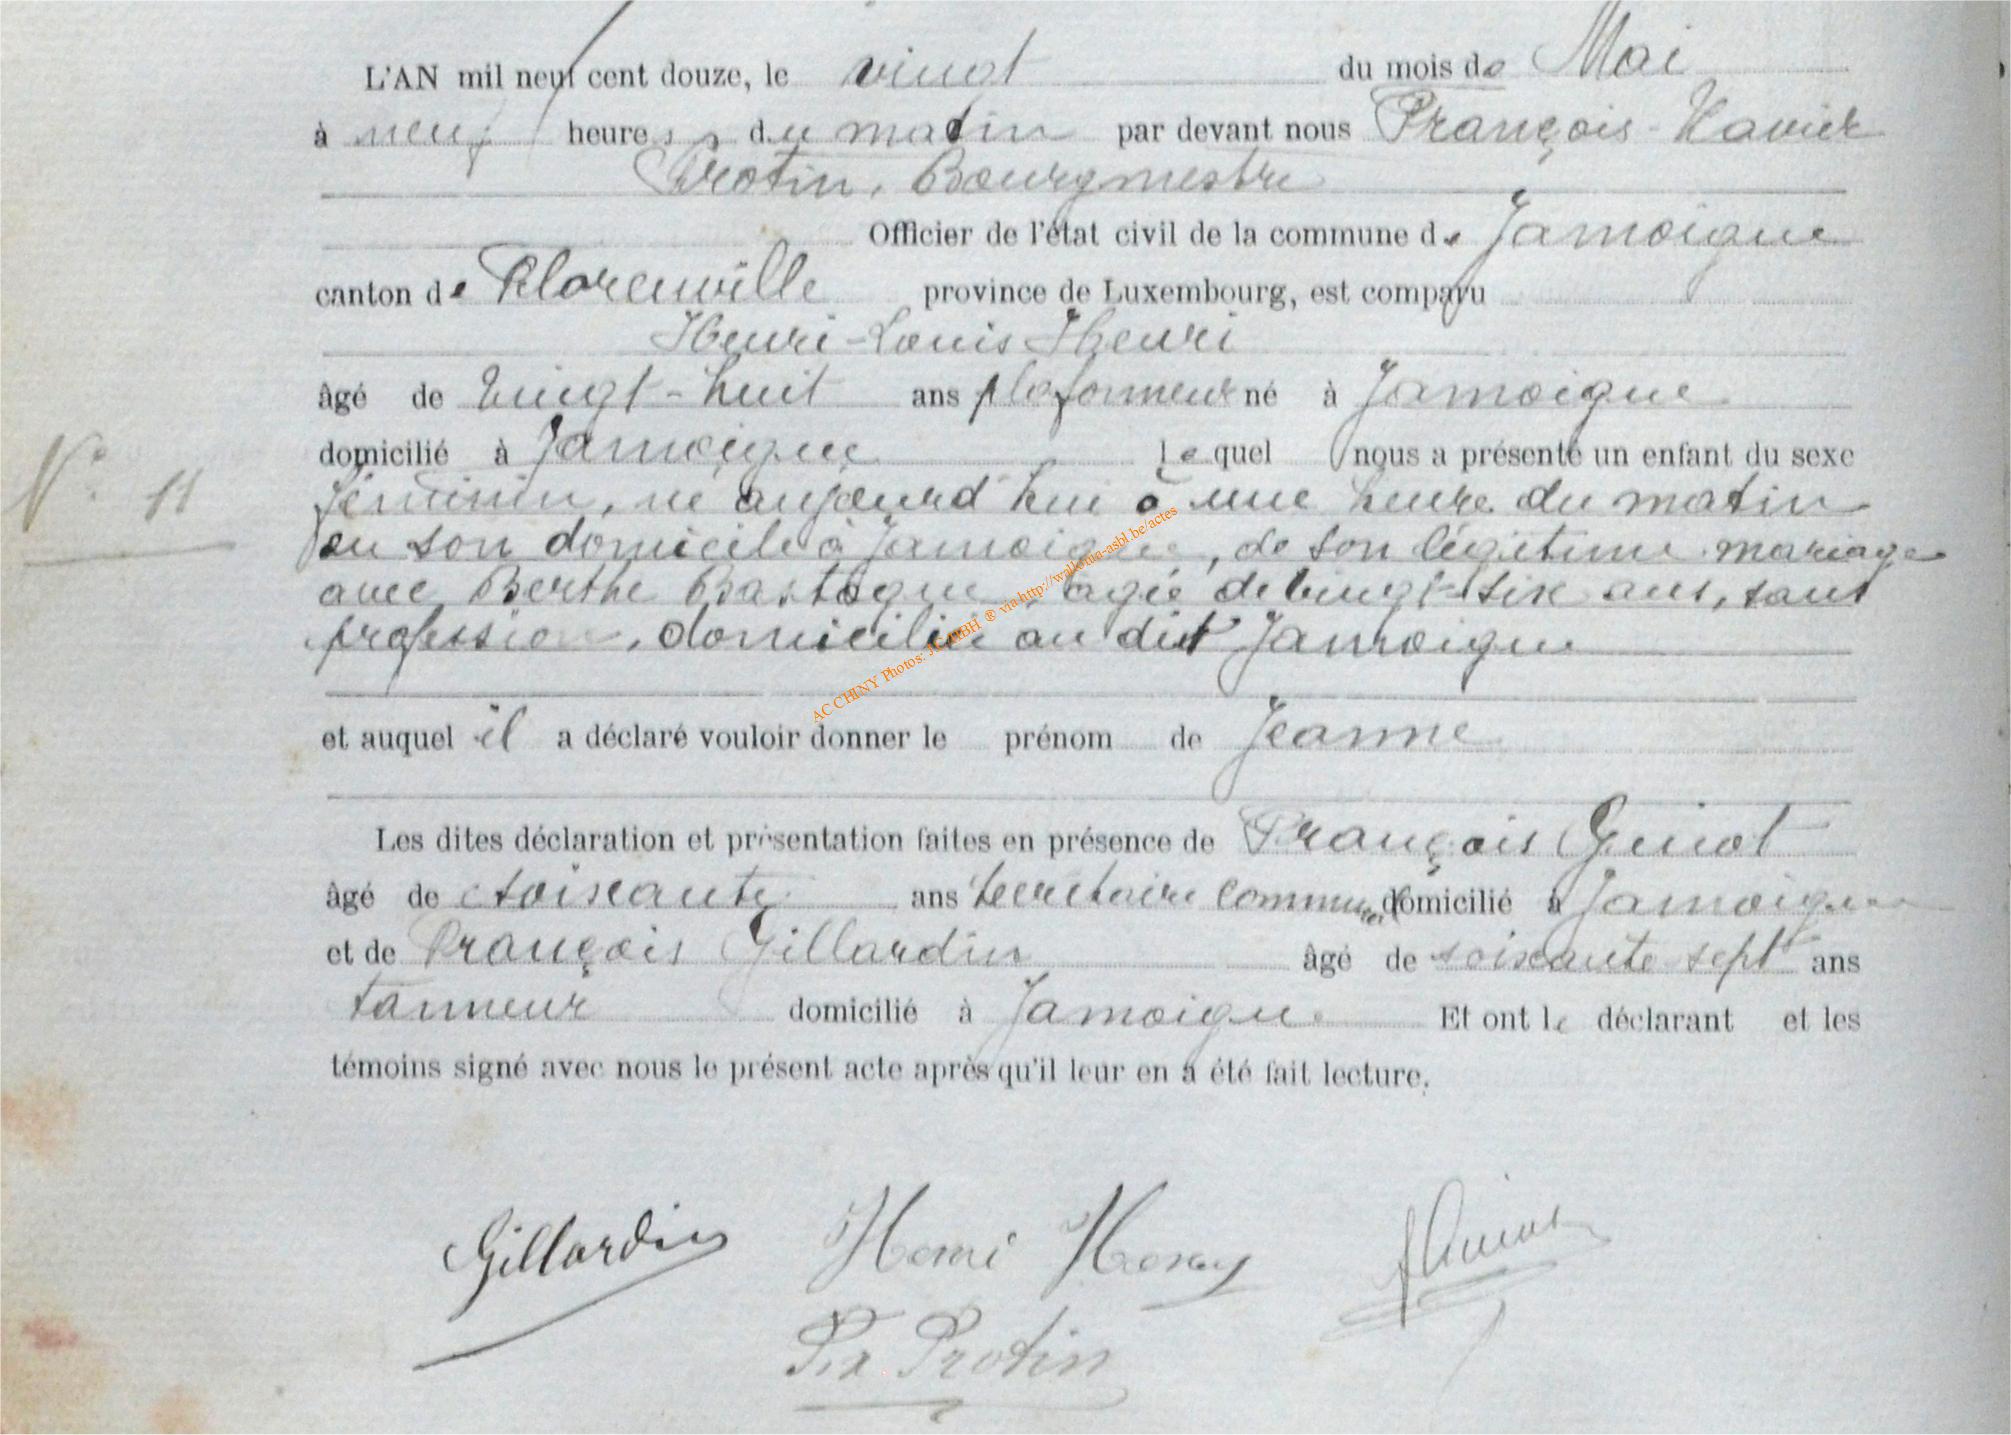 L'AN mil neuf cent douze, le vingt du mois de Mai
à neuf heures du matin par devant nous François-Xavier
Protin, Bourgmestre
Officier de l'état civil de la commune de Jamoigne
canton de Florenville province de Luxembourg, est comparu
Henri-Louis Henri
âgé de vingt-huit ans plafonneur né à Jamoigne
domicilié à Jamoigne lequel nous a présenté un enfant du sexe
N° 11
féminin, né aujourd'hui à une heure du matin
en son domicile à Jamoigne, de son légitime mariage
avec Berthe Bastogne, agée de vingt-six ans, sans
profession, domiciliée au dit Jamoigne
et auquel il a déclaré vouloir donner le prénom de Jeanne
Les dites déclaration et présentation faites en présence de François Guiot
âgé de soixante ans secrétaire communal domicilié à Jamoigne
et de François Gillardin âgé de soixante sept ans
tanneur domicilié à Jamoigne Et ont le déclarant et les
témoins signé avec nous le présent acte après qu'il leur en a été fait lecture.
Gillardin Henri Henry
Fx Protin
AC CHINY Photos: ® via http://wallonia-asbl.be/actes